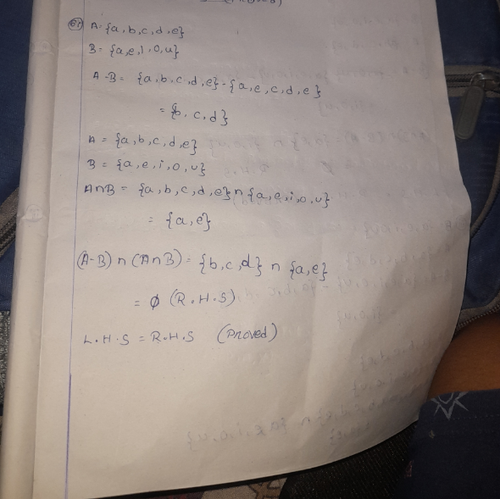 A = {a,b,c,d,e}
B = {a,e,i,o,u}
A-B = {a,b,c,d,e} - {a,e,c,d,e}
= {b,c,d}
A = {a,b,c,d,e}
B = {a,e,i,o,u}
A∩B = {a,b,c,d,e} ∩ {a,e,i,o,u}
= {a,e}
(A-B) ∩ (A∩B) = {b,c,d} ∩ {a,e}
= ϕ (R.H.S)
L.H.S = R.H.S (Proved)